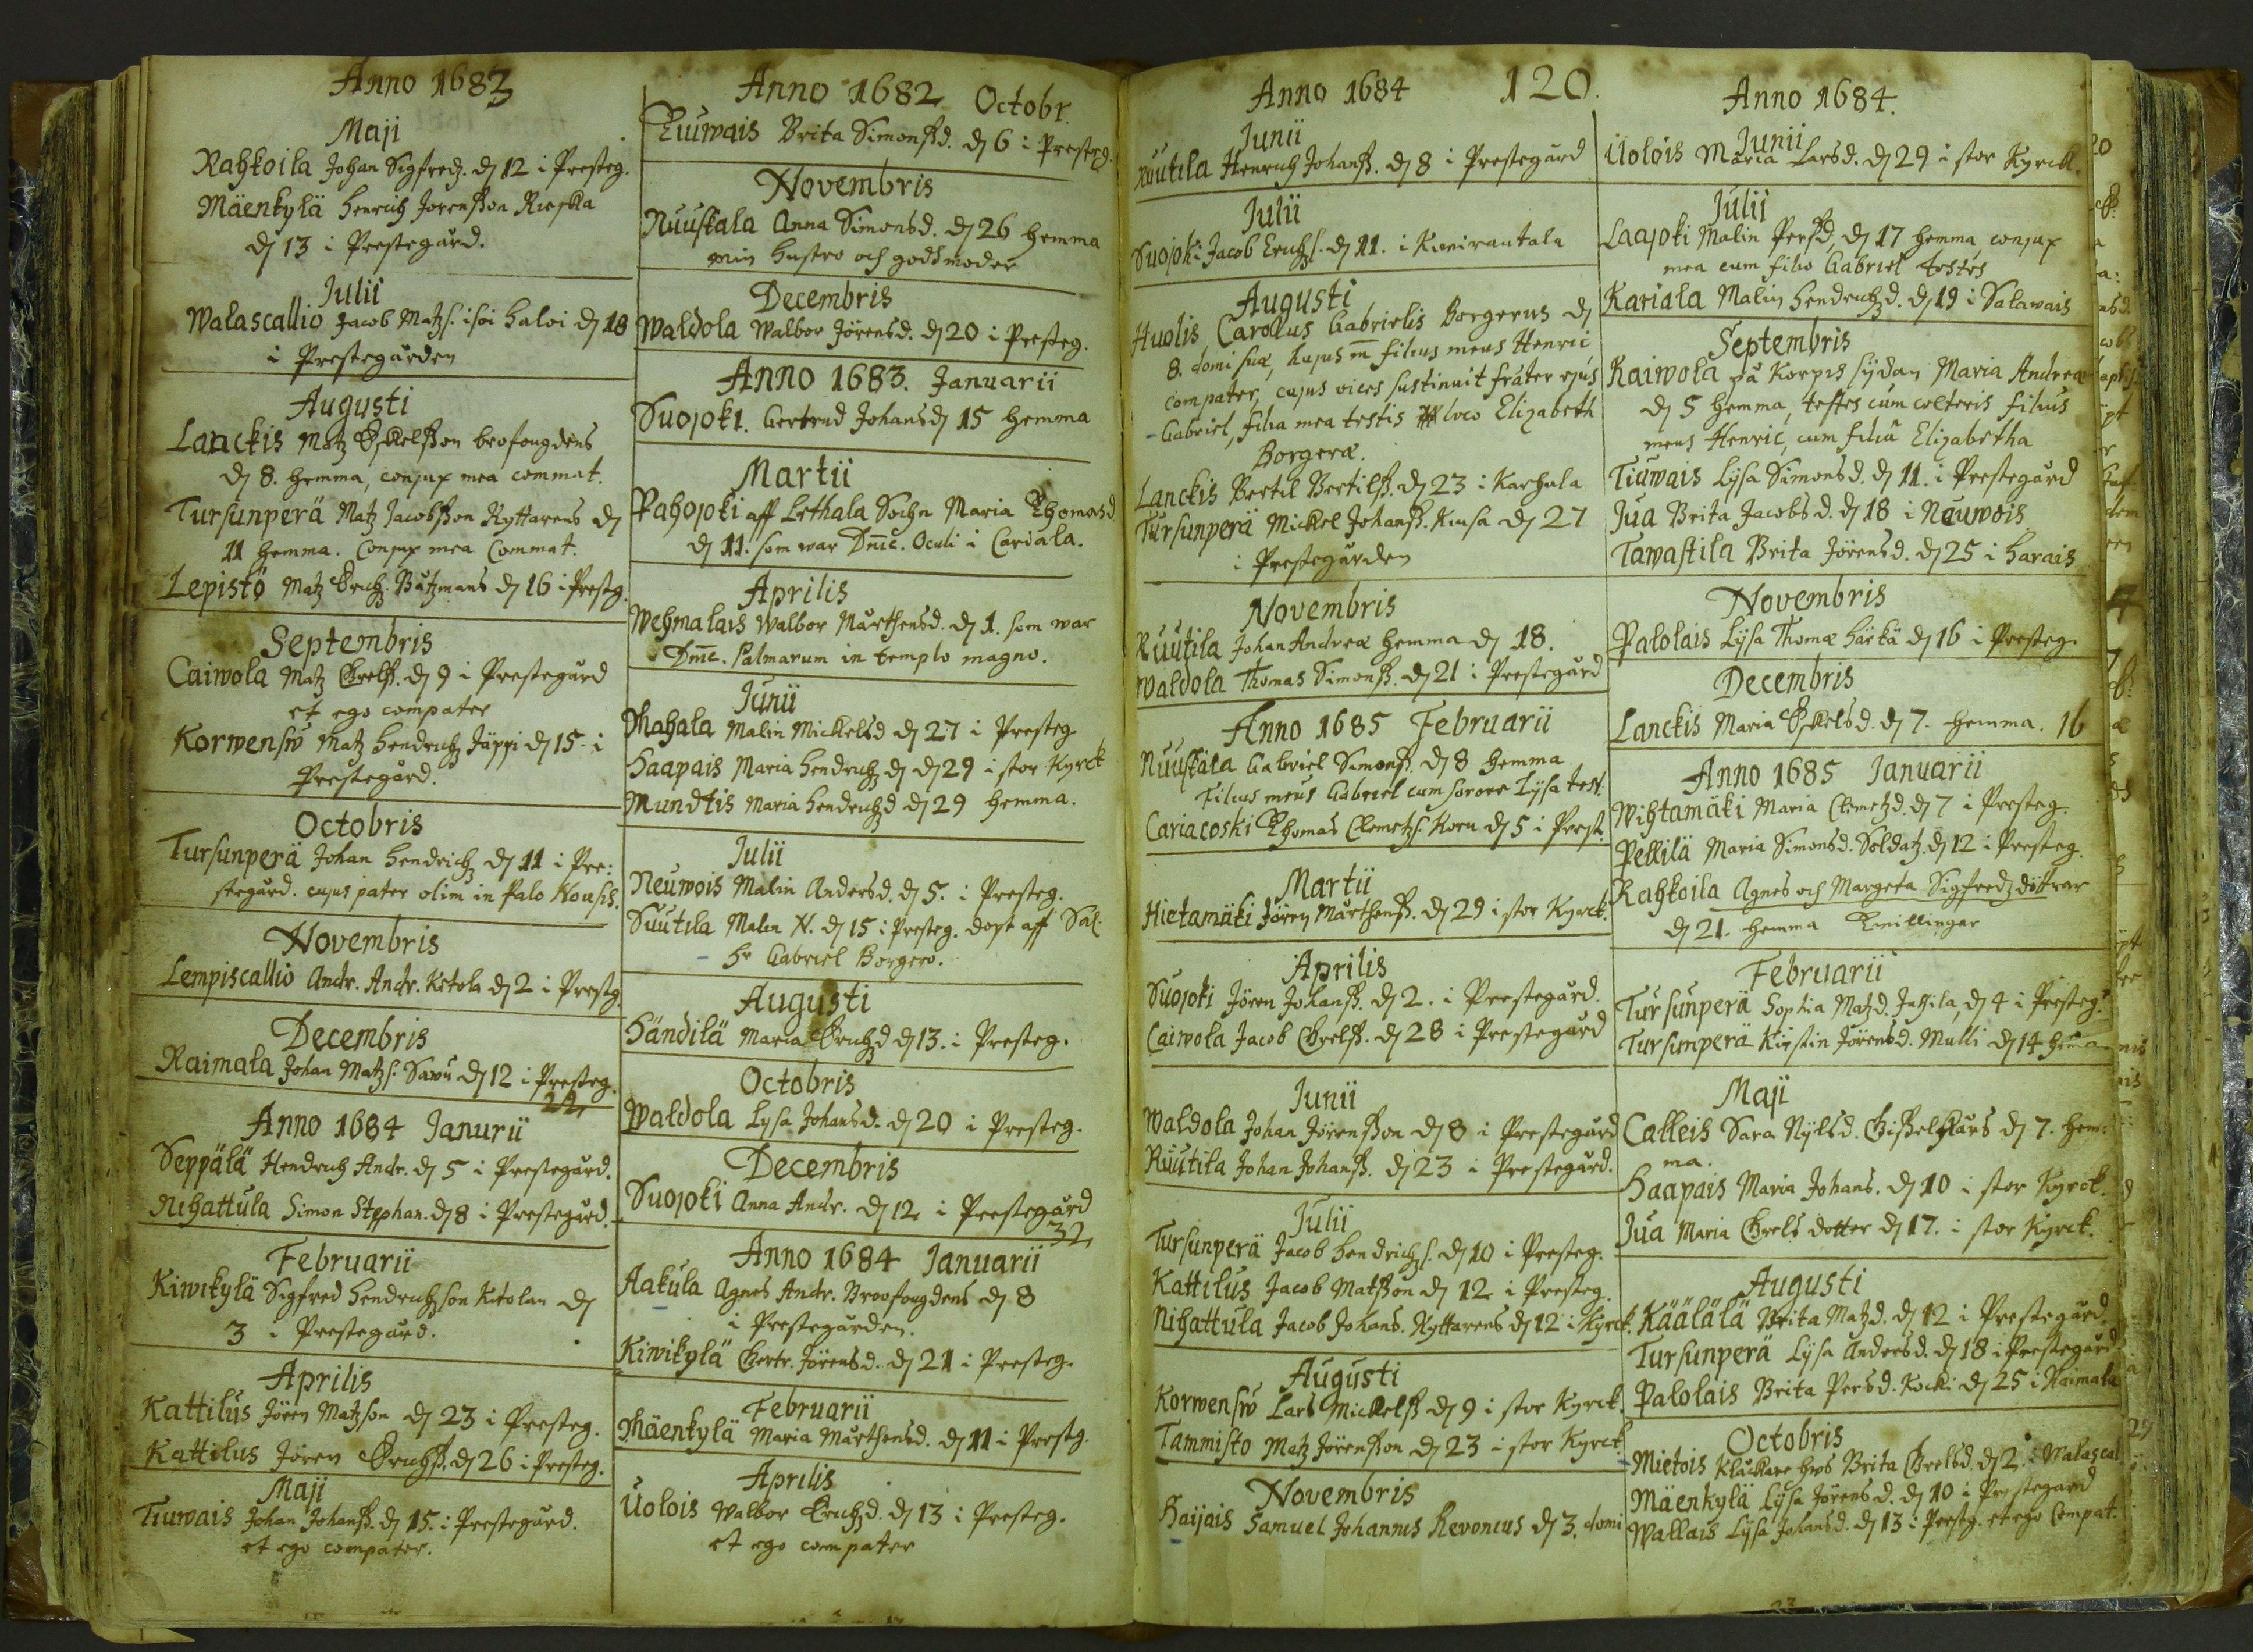 Anno 1683
Maji
Rahkoila Johan Sigfredz. dỹ 12 i Presteg.
Mäenkylä Henrich Jörensson Rieska
dỹ 13 i Prestegård.
Julii
Walascallio Jacob Matzs. isoi haloi dỹ 18
i Prestegården
Augusti
Lanckis Matz Eskelsson brofougdens
dỹ 8. hemma, conjux mea commat.
Tursunperä Matz Jacobsson Ryttarens dỹ
11 hemma. Conjux mea Commat.
Lepistö Matz Erichz. Båtzmans dỹ 16 i Prestg.
Septembris
Caiwola Matz Grelss. dỹ 9 i Prestegård
et ego compater
Korwensw Matz Hendrichz Jäppi dỹ 15. i
Prestegård.
Octobris
Tursunperä Johan Hendrichz dỹ 11 i Pre:
stegård. cujus pater olim in Palo
Novembris
Lempiscallio Andr. Andr. Ketola dỹ 2 i Prestg.
Decembris
Raimala Johan Matzs. Sawu dỹ 12 i Presteg.
22,
Anno 1684 Janurii
Seppälä Hendrich Andr. dỹ 5 i Prestegård.
Nihattula Simon Stephan. dỹ 8 i Prestegård.
Februarii
Kiwikylä Sigfred Hendrichzson Ketolan dỹ
3 i Prestegård.
Aprilis
Kattilus Jören Matzson dỹ 23 i Presteg.
Kattilus Jören Erichss. dỹ 26 i Presteg.
Maji
Tiuwais Johan Johanss. dỹ 15. i Prestegård.
et ego compater.
Anno 1682 Octobr.
Tiuwais Brita Simonssd. dỹ 6 i Presteg.
Novembris
Nuuskala Anna Simonsd. dỹ 26 hemma
min hustro och godhmoder
Decembris
Waldola Walbor Jörensd. dỹ 20 i Presteg.
Anno 1683. Januarii
Suojoki. Gertrud Johansd dỹ 15 hemma
Martii
Pahojoki aff Lethala Sochn Maria Thomasd
dỹ 11. som war Dnic. Oculi i Cariala.
Aprilis
Wehmalais Walbor Mårthensd. dỹ 1. som war
Dnic. Palmarum in templo magno.
Junii
Mahala Malin Mickelsd dỹ 27 i Presteg
Haapais Maria Hendrichz d dỹ 29 i stor Kyrck
Mundtis Maria Hendrichzd dỹ 29 hemma.
Julii
Neuwois Malin Andersd. dỹ 5. i Presteg.
Suutila Malin N. dỹ 15 i Presteg. döpt aff Sal.
Hr Gabriel Borgero.
Augusti
Händilä Maria Erichzd dỹ 13. i Presteg.
Octobris
Waldola Lysa Johansd. dỹ 20 i Presteg.
Decembris
Suojoki Anna Andr. dỹ 12 i Prestegård
32,
Anno 1684 Januarii
Aakula Agnes Andr. Broofougdens dỹ 8
i Prestegården.
Kiwikylä Gertr. Jörensd. dỹ 21 i Presteg.
Februarii
Mäenkylä Maria Mårthensd. dỹ 11 i Prestg.
Aprilis
Uolois Walbor Erichzd. dỹ 13 i Presteg.
et ego compater
Anno 1684 120.
Junii
Ruutila Henrich Johanss. dỹ 8 i Prestegård
Julii
Suojoki Jacob Erichzs. dỹ 11. i Kneirantala
Augusti
Huolis Carolus Gabrielis Borgerus dỹ
8. domi suæ, hujus m filius meus Henric
compater, cujus vices sustinuit frater ejus
Gabriel, filia mea testis loco Elizabeth
Borgeræ.
Lanckis Bertil Bertilss. dỹ 23 i Karhula
Tursunperä Mickel Johanss. dỹ 27
i Prestegården
Novembris
Ruutila Johan Andreæ hemma dỹ 18.
Waldola Thomas Simonss. dỹ 21 i Prestegård
Anno 1685 Februarii
Nuuskala Gabriel Simonss. dỹ 8 hemma
Filius meus Gabriel cum sorore Lysa test.
Cariacoski Thomas Clemetzs. Koru dỹ 5 i Prest.
Martii
Hietamäki Jören Mårthenss. dỹ 29 i stor Kyrck.
Aprilis
Suojoki Jören Johanss. dỹ 2. i Prestegård.
Caiwola Jacob Grelss. dỹ 28 i Prestegård
Junii
Waldola Johan Jörensson dỹ 8 i Prestegård
Ruutila Johan Johanss. dỹ 23 i Prestegård.
Julii
Tursunperä Jacob Hendrichzs. dỹ 10 i Presteg.
Kattilus Jacob Matsson dỹ 12 i Presteg.
Nihattula Jacob Johans. Ryttarens dỹ 12 i Kyrck.
Augusti
Korwensw Lars Mickelss dỹ 9 i stor Kyrck.
Tammisto Matz Jörensson dỹ 23 i stor Kyrck
Novembris
Haijais Samuel Johannis Revonius dỹ 3. domi
Anno 1684.
Junii
Uolois Maria Larsd. dỹ 29 i stor Kyrck.
Julii
Laajoki Malin Persd, dỹ 17 hemma conjux
mea cum filio Gabriel testes
Kariala Malin Hendrichzd. dỹ 19 i Salawais
Septembris
Kaiwola på Korpis sijdan Maria Andreæ
dỹ 5 hemma, testes cum cæteris filius
meus Henric, cum filia Elizabetha
Tiuwais Lysa Simonsd. dỹ 11. i Prestegård
Jua Brita Jacobsd. dỹ 18 i Neuwois
Tawastila Brita Jörensd. dỹ 25 i Harais
Novembris
Palolais Lysa Thomæ Härkä dỹ 16 i Presteg.
Decembris
Lanckis Maria Eskelsd. dỹ 7. hemma. 16
Anno 1685 Januarii
Wihtamäki Maria Clemetzd. dỹ 7 i Presteg.
Pellilä Maria Simonsd. Soldatz. dỹ 12 i Presteg.
Rahkoila Agnes och Margeta Sigfredz döttrar
dỹ 21. hemma Twillingar
Februarii
Tursunperä Sophia Matzd. Juttila, dỹ 4 i Presteg.
Tursunperä Kirstin Jörensd. Mulli dỹ 14 hema
Maji
Calleis Sara Nylsd. Gisselskårs dỹ 7. hem:
ma.
Haapais Maria Johans. dỹ 10 i stor Kyrck.
Jua Maria Grels dotter dỹ 17. i stor Kyrck.
Augusti
Käälälä Brita Matzd. dỹ 12 i Prestegård.
Tursunperä Lysa Andersd. dỹ 18 i Prestegård
Palolais Brita Persd. Kocki dỹ 25 i Raimala
Octobris
Mietois Klåckare hws Brita Grelsd. dỹ 2. i Walascal
Mäenkylä Lysa Jörensd. dỹ 10 i Prestegård
Wallais Lysa Johansd. dỹ 13 i Prestg. et ego Compat.